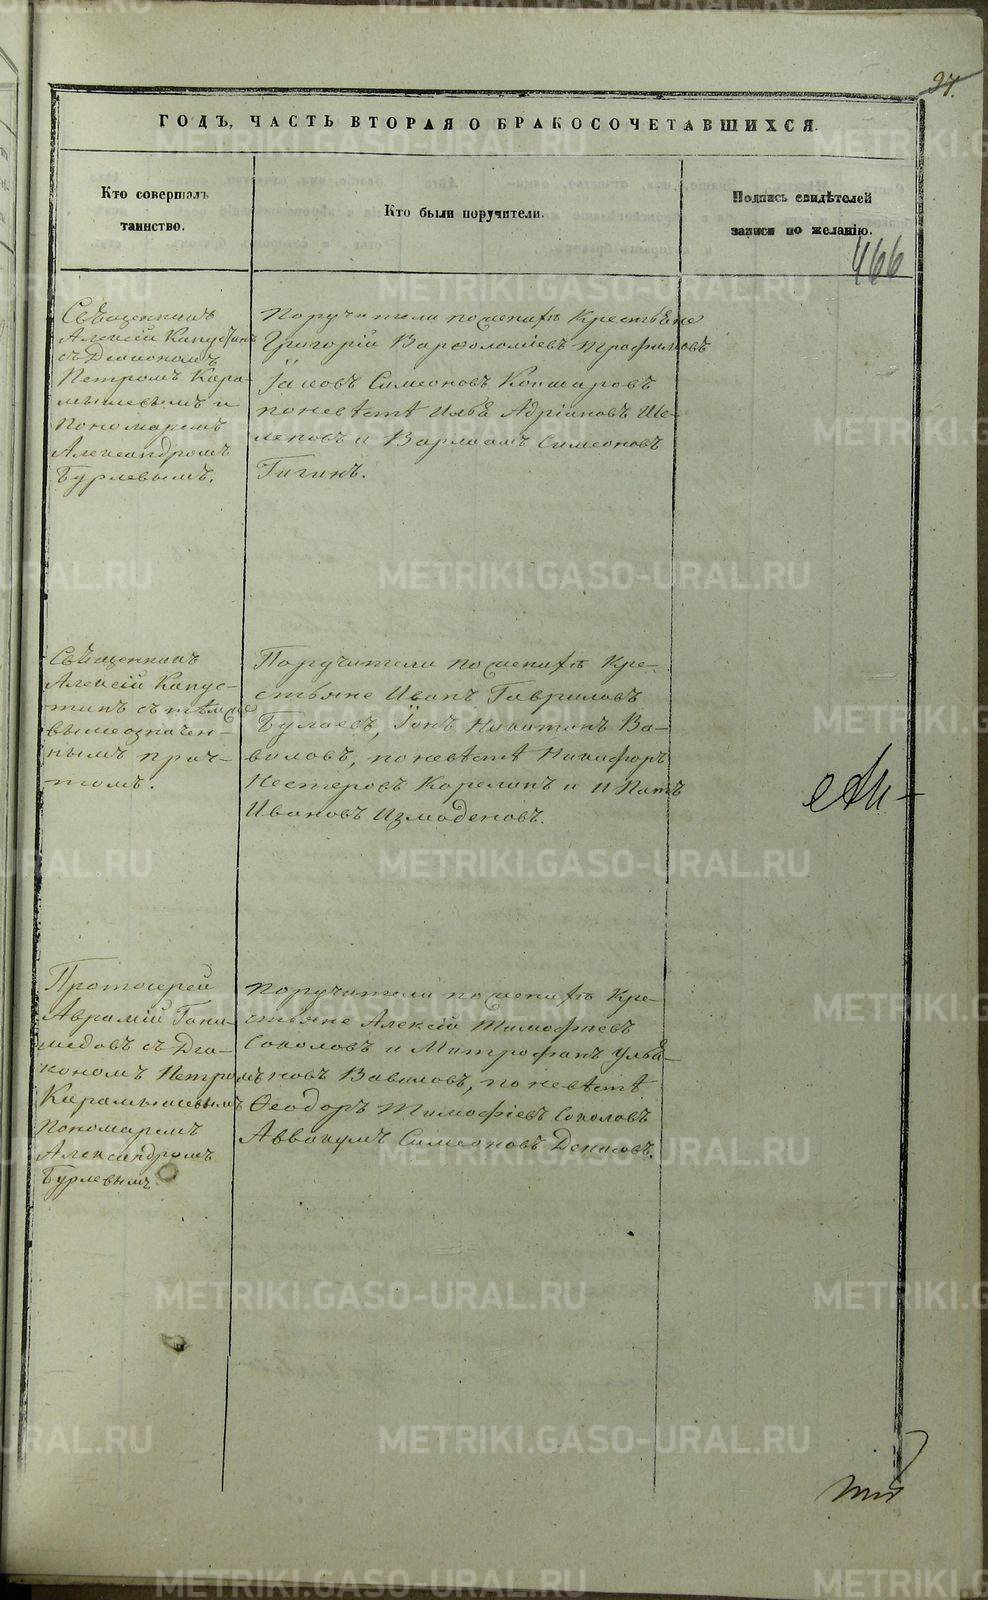 97.
ГОДЪ, ЧАСТЬ ВТОРАЯ О БРАКОСОЧЕТАВШИХСЯ.
Кто совершалъ
таинство.
Кто были поручители.
Подпись свидѣтелей
записи по желанію.
466
Священникъ
Алексій Капустинъ
съ Діакономъ
Петромъ Кара-
мышевымъ и
Пономаремъ
Александромъ
Бурлевымъ.
Поручители по женихѣ Крестьяне
Григорій Варѳоломіевъ Трофимовъ
Іаковъ Симеоновъ Кошкаровъ
по невѣстѣ Илья Адріановъ Ше-
леповъ и Варлаамъ Симеоновъ
Гигинъ.
Священникъ
Алексій Капус-
тинъ съ тѣмже
вышеозначен-
нымъ прич-
томъ.
Поручители по женихѣ Кре-
стьяне Иванъ Гавриловъ
Булаевъ, Іонъ Никитинъ Ва-
виловъ, по невѣстѣ Никифоръ
Нестеровъ Карелинъ и Ипатъ
Ивановъ Измоденовъ.
Протоіерей
Аврамій Гани-
медовъ съ Діа-
кономъ Петромъ
Карамышевымъ
Пономаремъ
Александромъ
Бурлевымъ
Поручители по женихѣ Кре-
стьяне Алексій Тимофіевъ
Соколовъ и Митрофанъ Улья-
новъ Вавиловъ, по невѣстѣ
Ѳеодоръ Тимофіевъ Соколовъ
Аввакумъ Симеоновъ Денисовъ.
METRIKI.GASO-URAL.RU